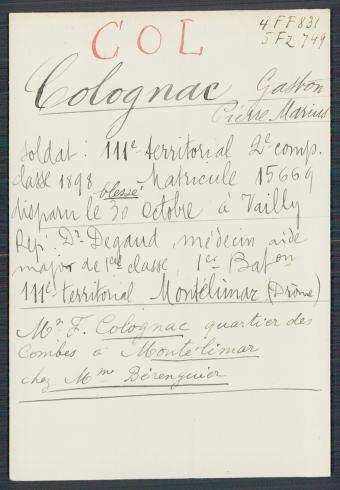 COL
4 FF 831
5 FZ 749
Colognac Gaston
Pierre Marius
soldat : 111e territorial 2e comp.
classe 1898 blessé Matricule 15669
disparu le 30 octobre à Vailly
Rep. Dr Degaud, médecin aide
major de 1ere classe, 1er Baton
111e territorial Montélimar (Drôme)
Mr F. Colognac quartier des
Combes à Montélimar
chez Mme Bérenguier